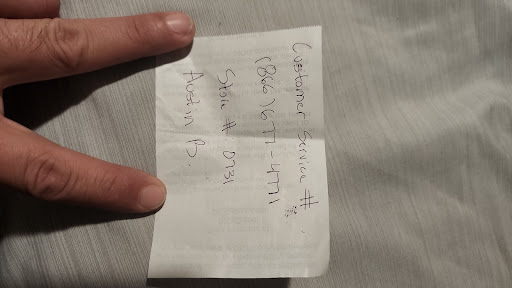 Customer Service #
(866) 677-4771
Store # 0731
Austin B.